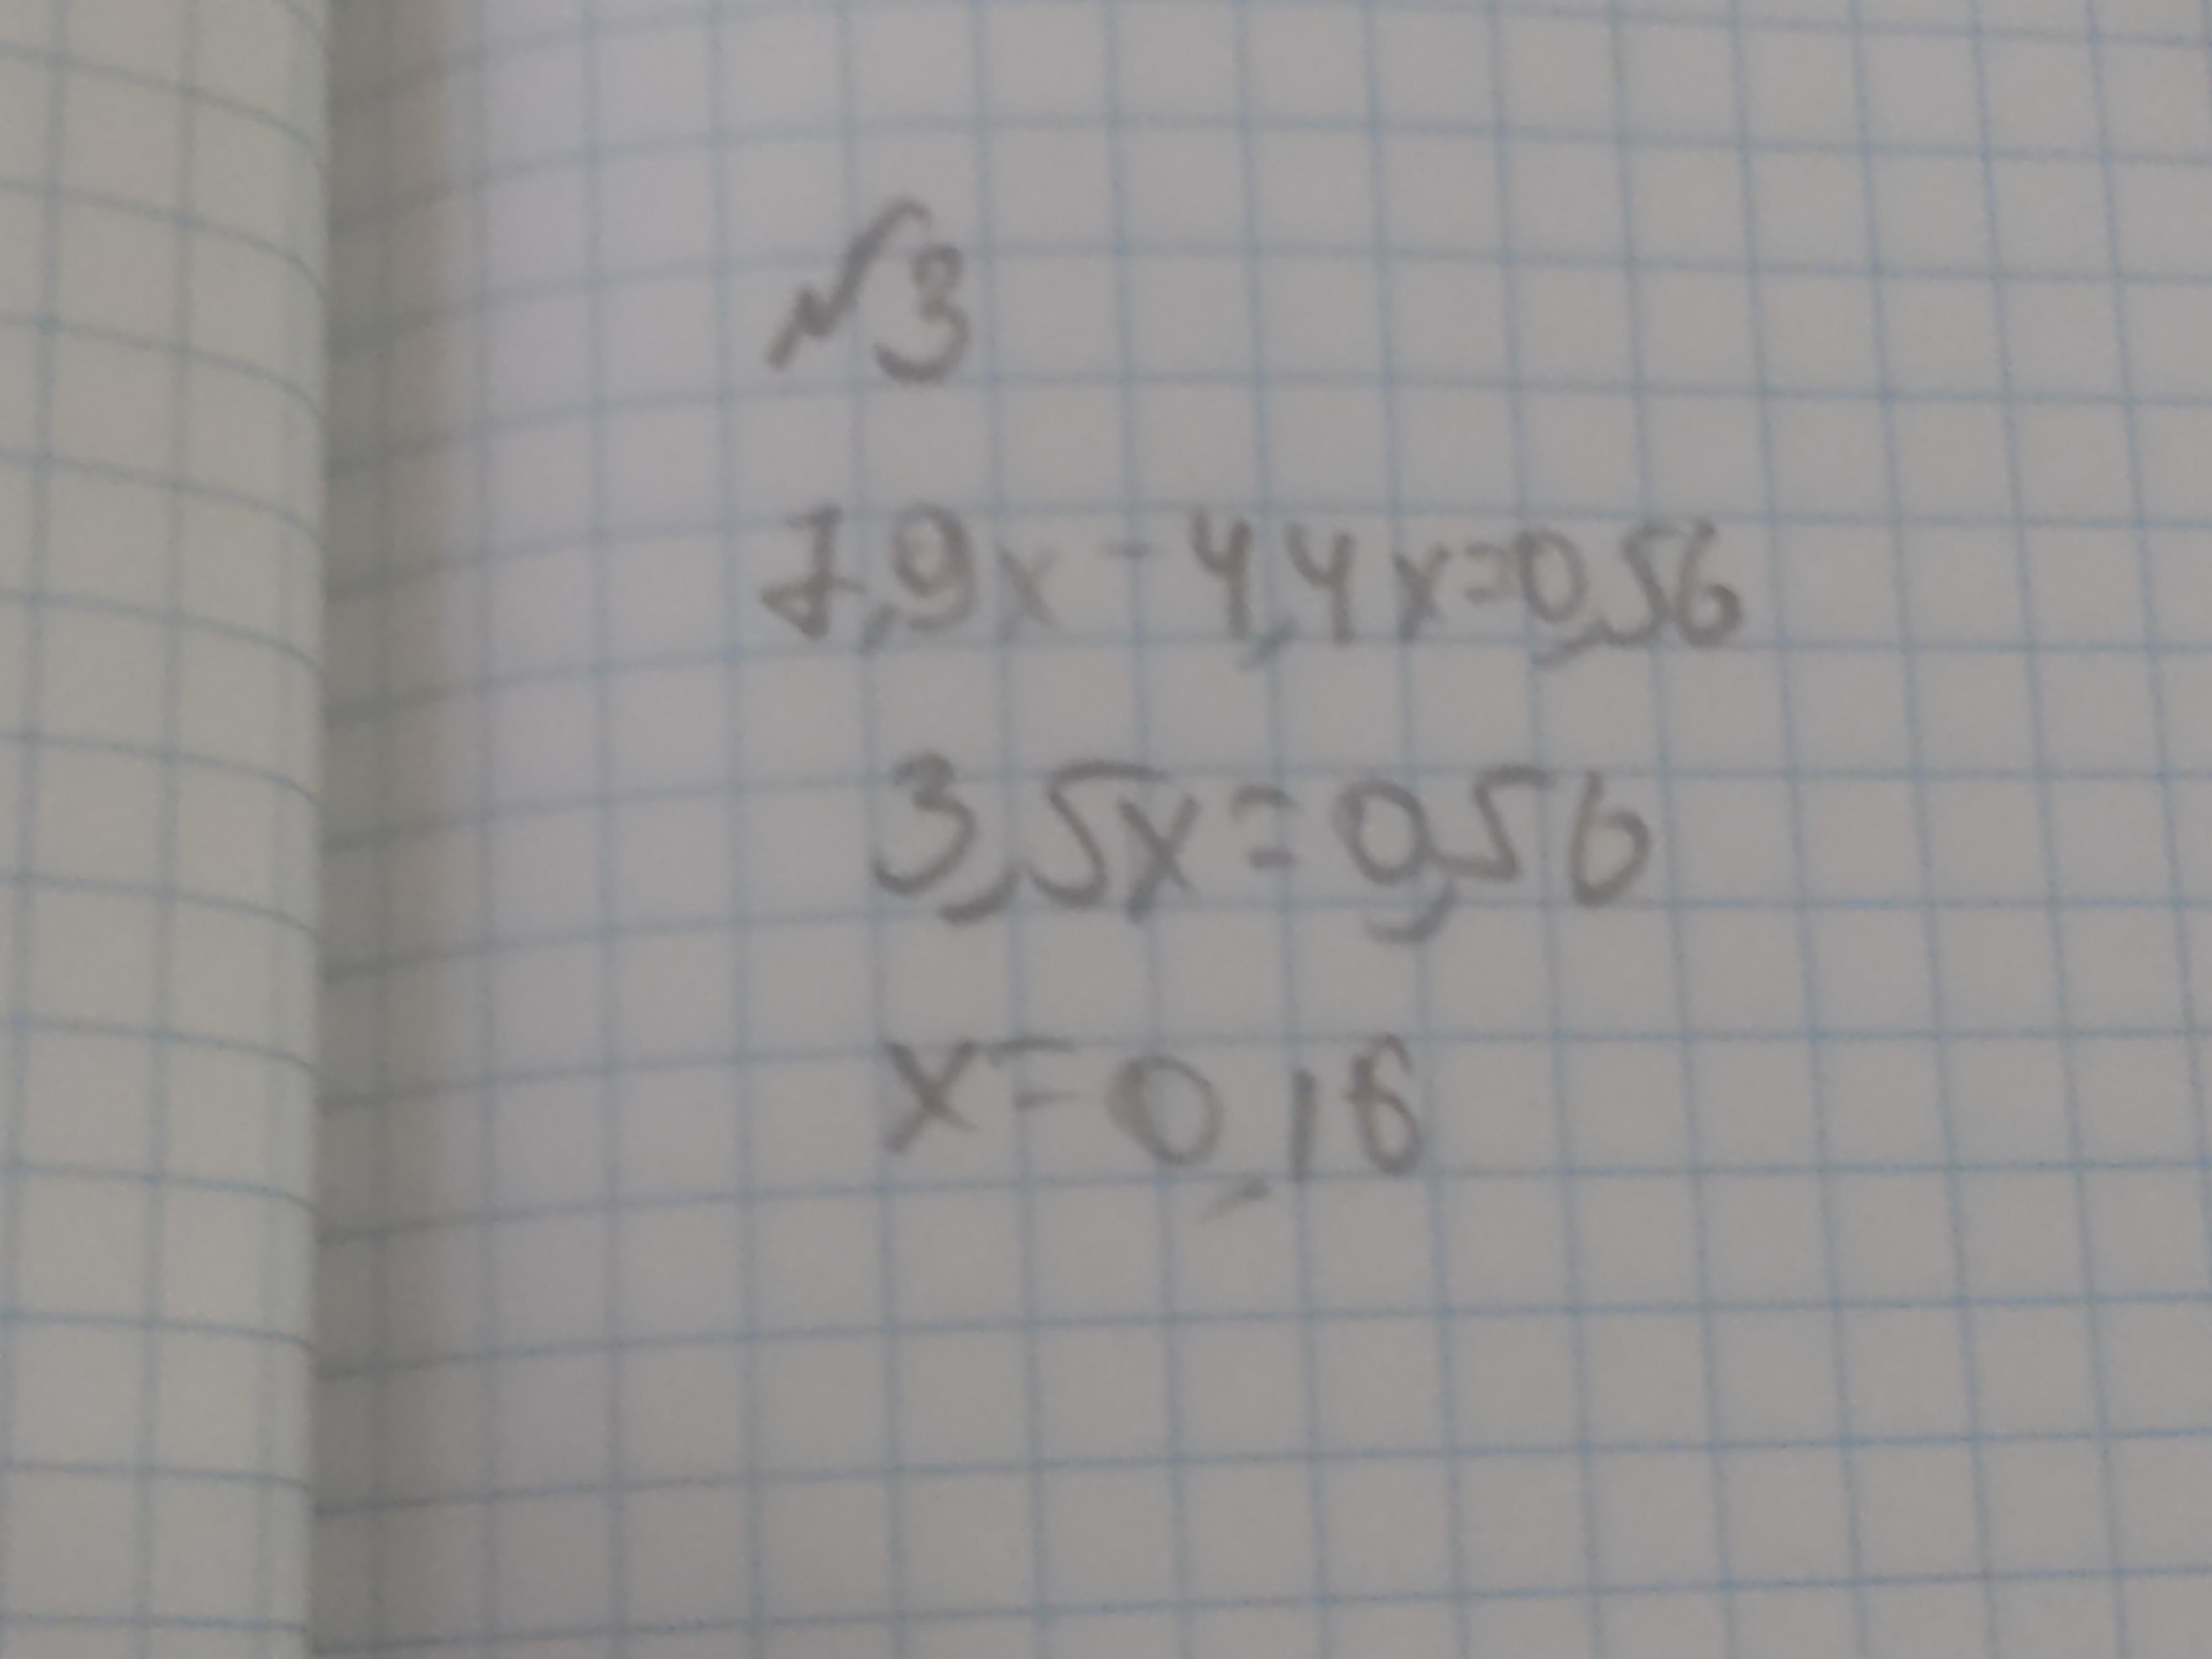 №3
7,9x - 4,4x=0,56
3,5x=0,56
x=0,16